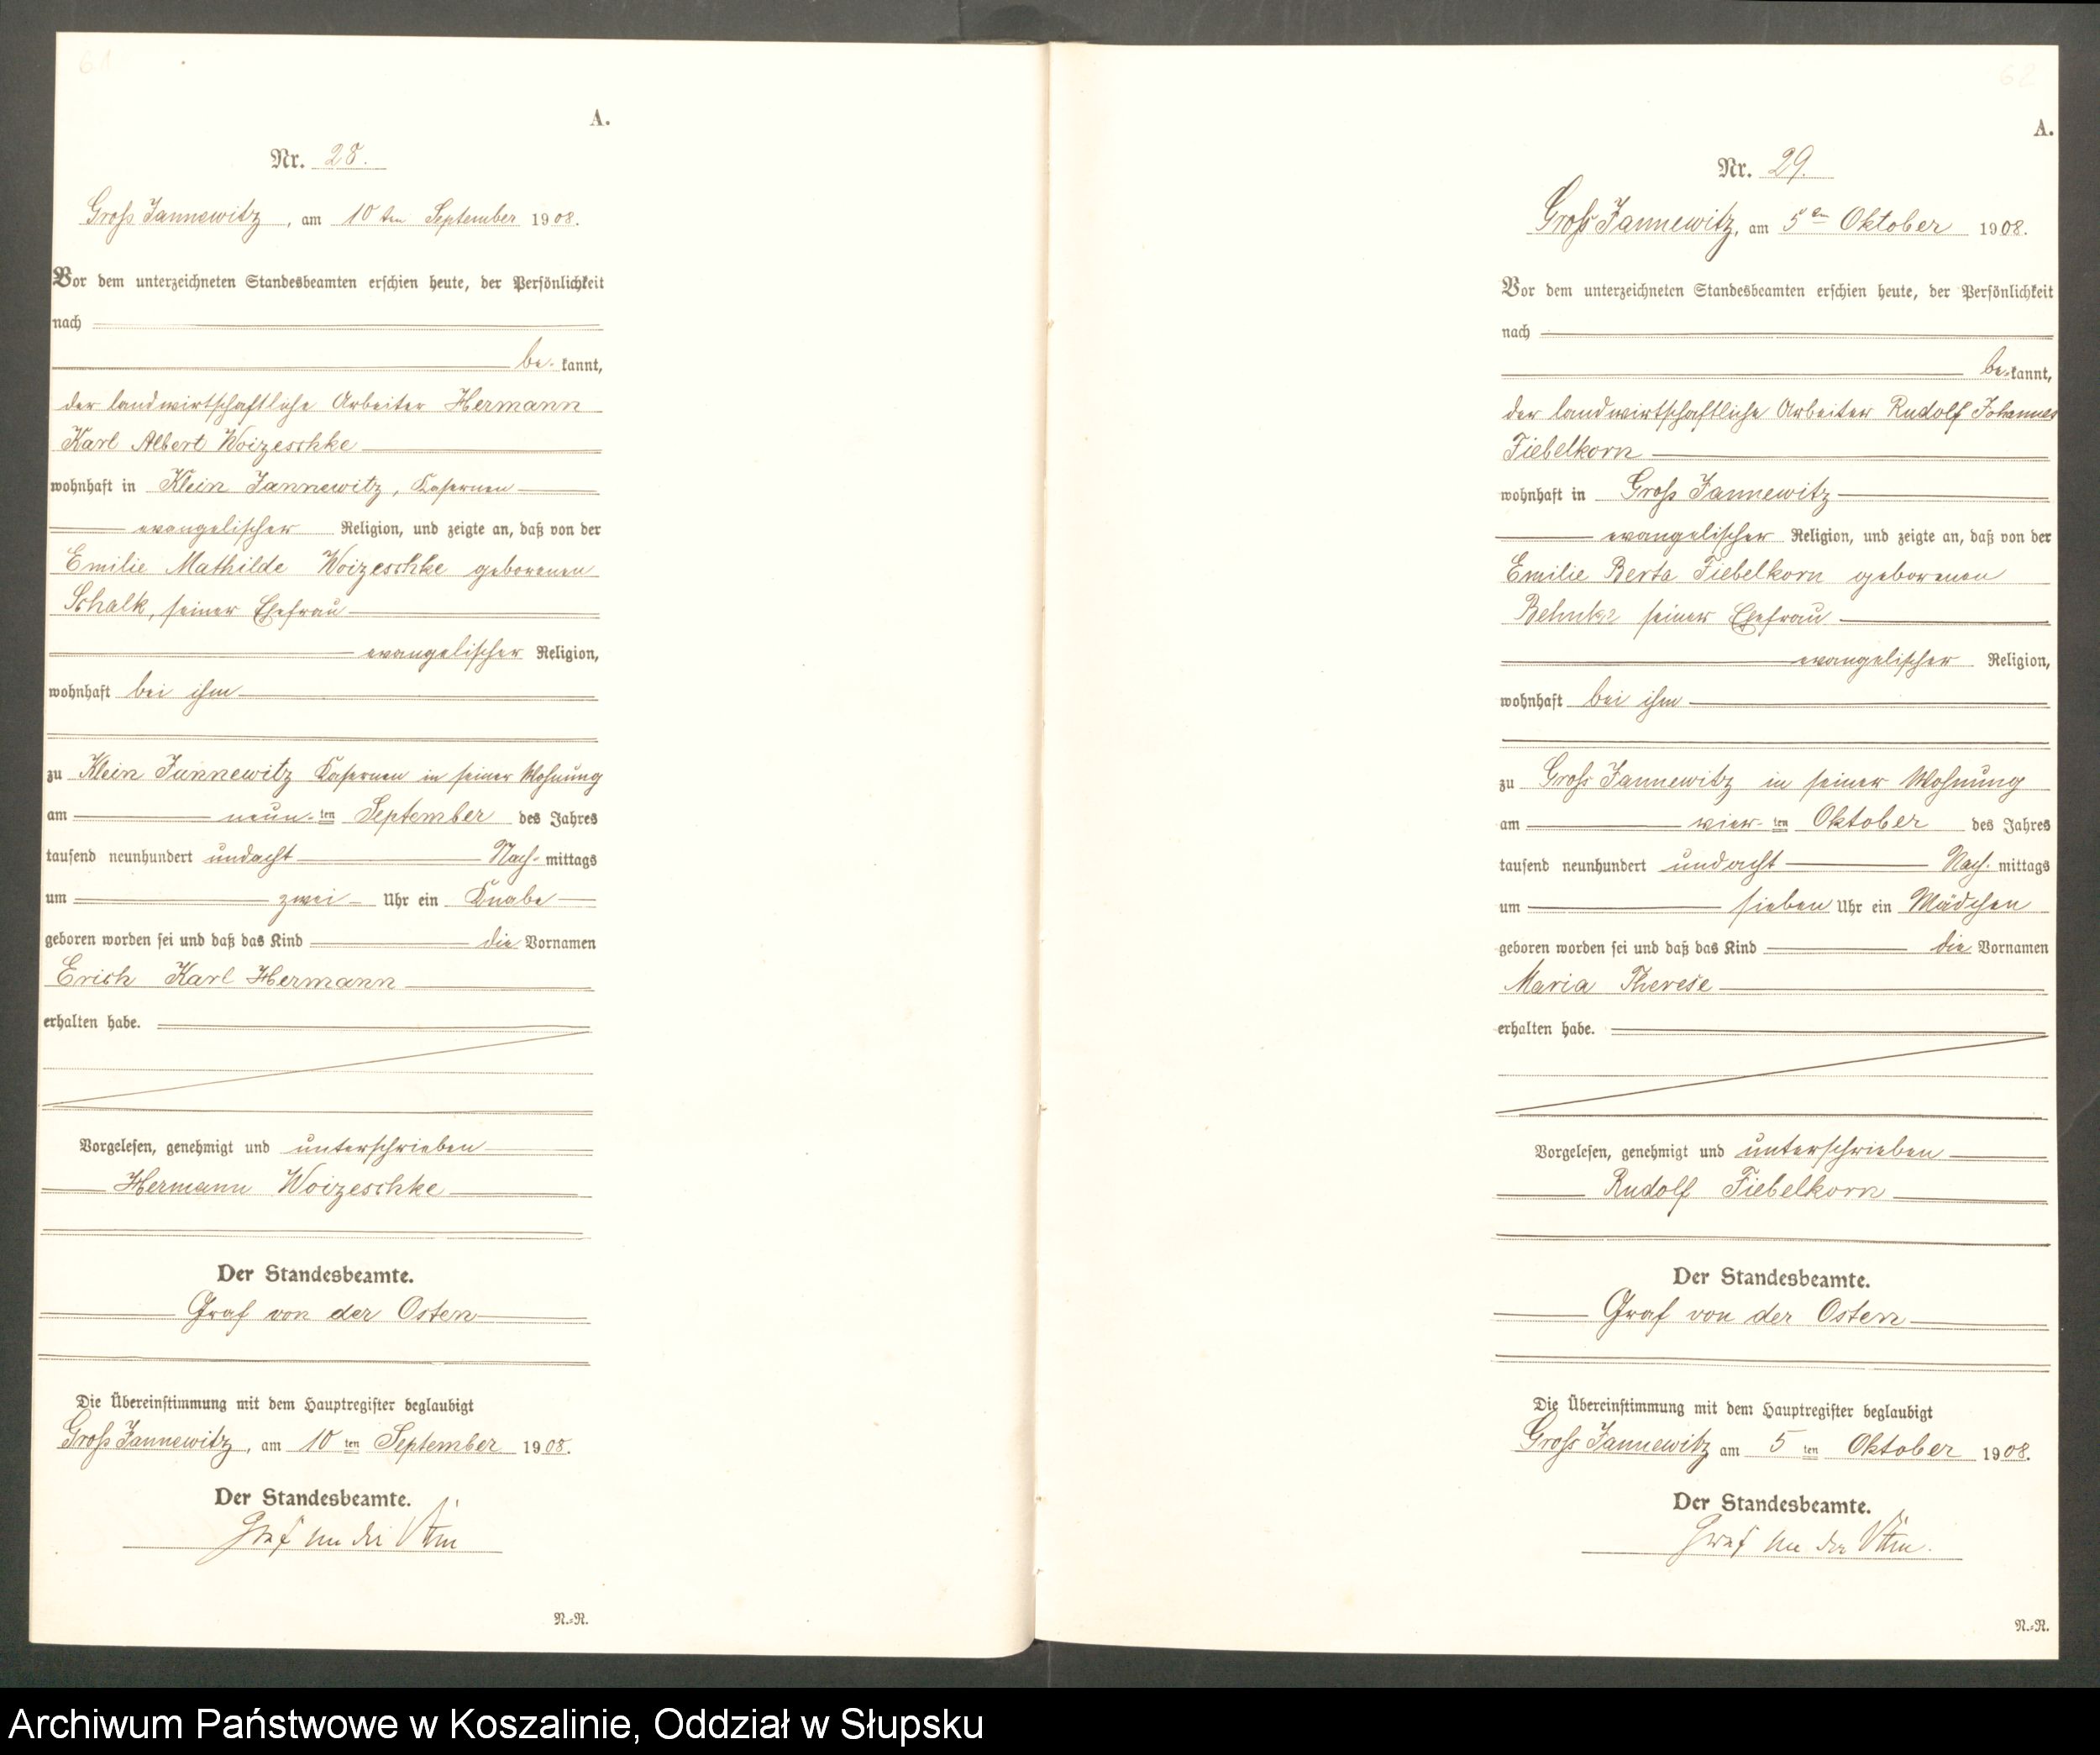 61
A.
Nr. 28.
Gross Jannewitz, am 10 ten September 1908.
Vor dem unterzeichneten Standesbeamten erschien heute, der Persönlichkeit
nach
be- kannt,
der landwirtschaftliche Arbeiter Hermann
Karl Albert Woizeschke
wohnhaft in Klein Jannewitz, Kasernen
evangelischer Religion, und zeigte an, daß von der
Emilie Mathilde Woizeschke geborenen
Schalk, seiner Ehefrau
evangelischer Religion,
wohnhaft bei ihm
zu Klein Jannewitz Kasernen in seiner Wohnung
am neun- ten September des Jahres
tausend neunhundert undacht Nach- mittags
um zwei Uhr ein Knabe
geboren worden sei und daß das Kind die Vornamen
Erich Karl Hermann
erhalten habe.
Vorgelesen, genehmigt und unterschrieben
Hermann Woizeschke
Der Standesbeamte.
Graf von der Osten
Die Übereinstimmung mit dem Hauptregister beglaubigt
Gross Jannewitz, am 10 ten September 1908.
Der Standesbeamte.
Graf von der Osten
N.=R.
62
A.
Nr. 29.
Gross Jannewitz, am 5 en Oktober 1908.
Vor dem unterzeichneten Standesbeamten erschien heute, der Persönlichkeit
nach
be- kannt,
der landwirtschaftliche Arbeiter Rudolf Johannes
Fiebelkorn
wohnhaft in Gross Jannewitz
evangelischer Religion, und zeigte an, daß von der
Emilie Berta Fiebelkorn geborenen
Behnke seiner Ehefrau
evangelischer Religion,
wohnhaft bei ihm
zu Gross Jannewitz in seiner Wohnung
am vier- ten Oktober des Jahres
tausend neunhundert undacht Nach- mittags
um sieben Uhr ein Mädchen
geboren worden sei und daß das Kind die Vornamen
Maria Therese
erhalten habe.
Vorgelesen, genehmigt und unterschrieben
Rudolf Fiebelkorn
Der Standesbeamte.
Graf von der Osten
Die Übereinstimmung mit dem Hauptregister beglaubigt
Gross Jannewitz am 5 ten Oktober 1908.
Der Standesbeamte.
Graf von der Osten.
N.=R.
Archiwum Państwowe w Koszalinie, Oddział w Słupsku